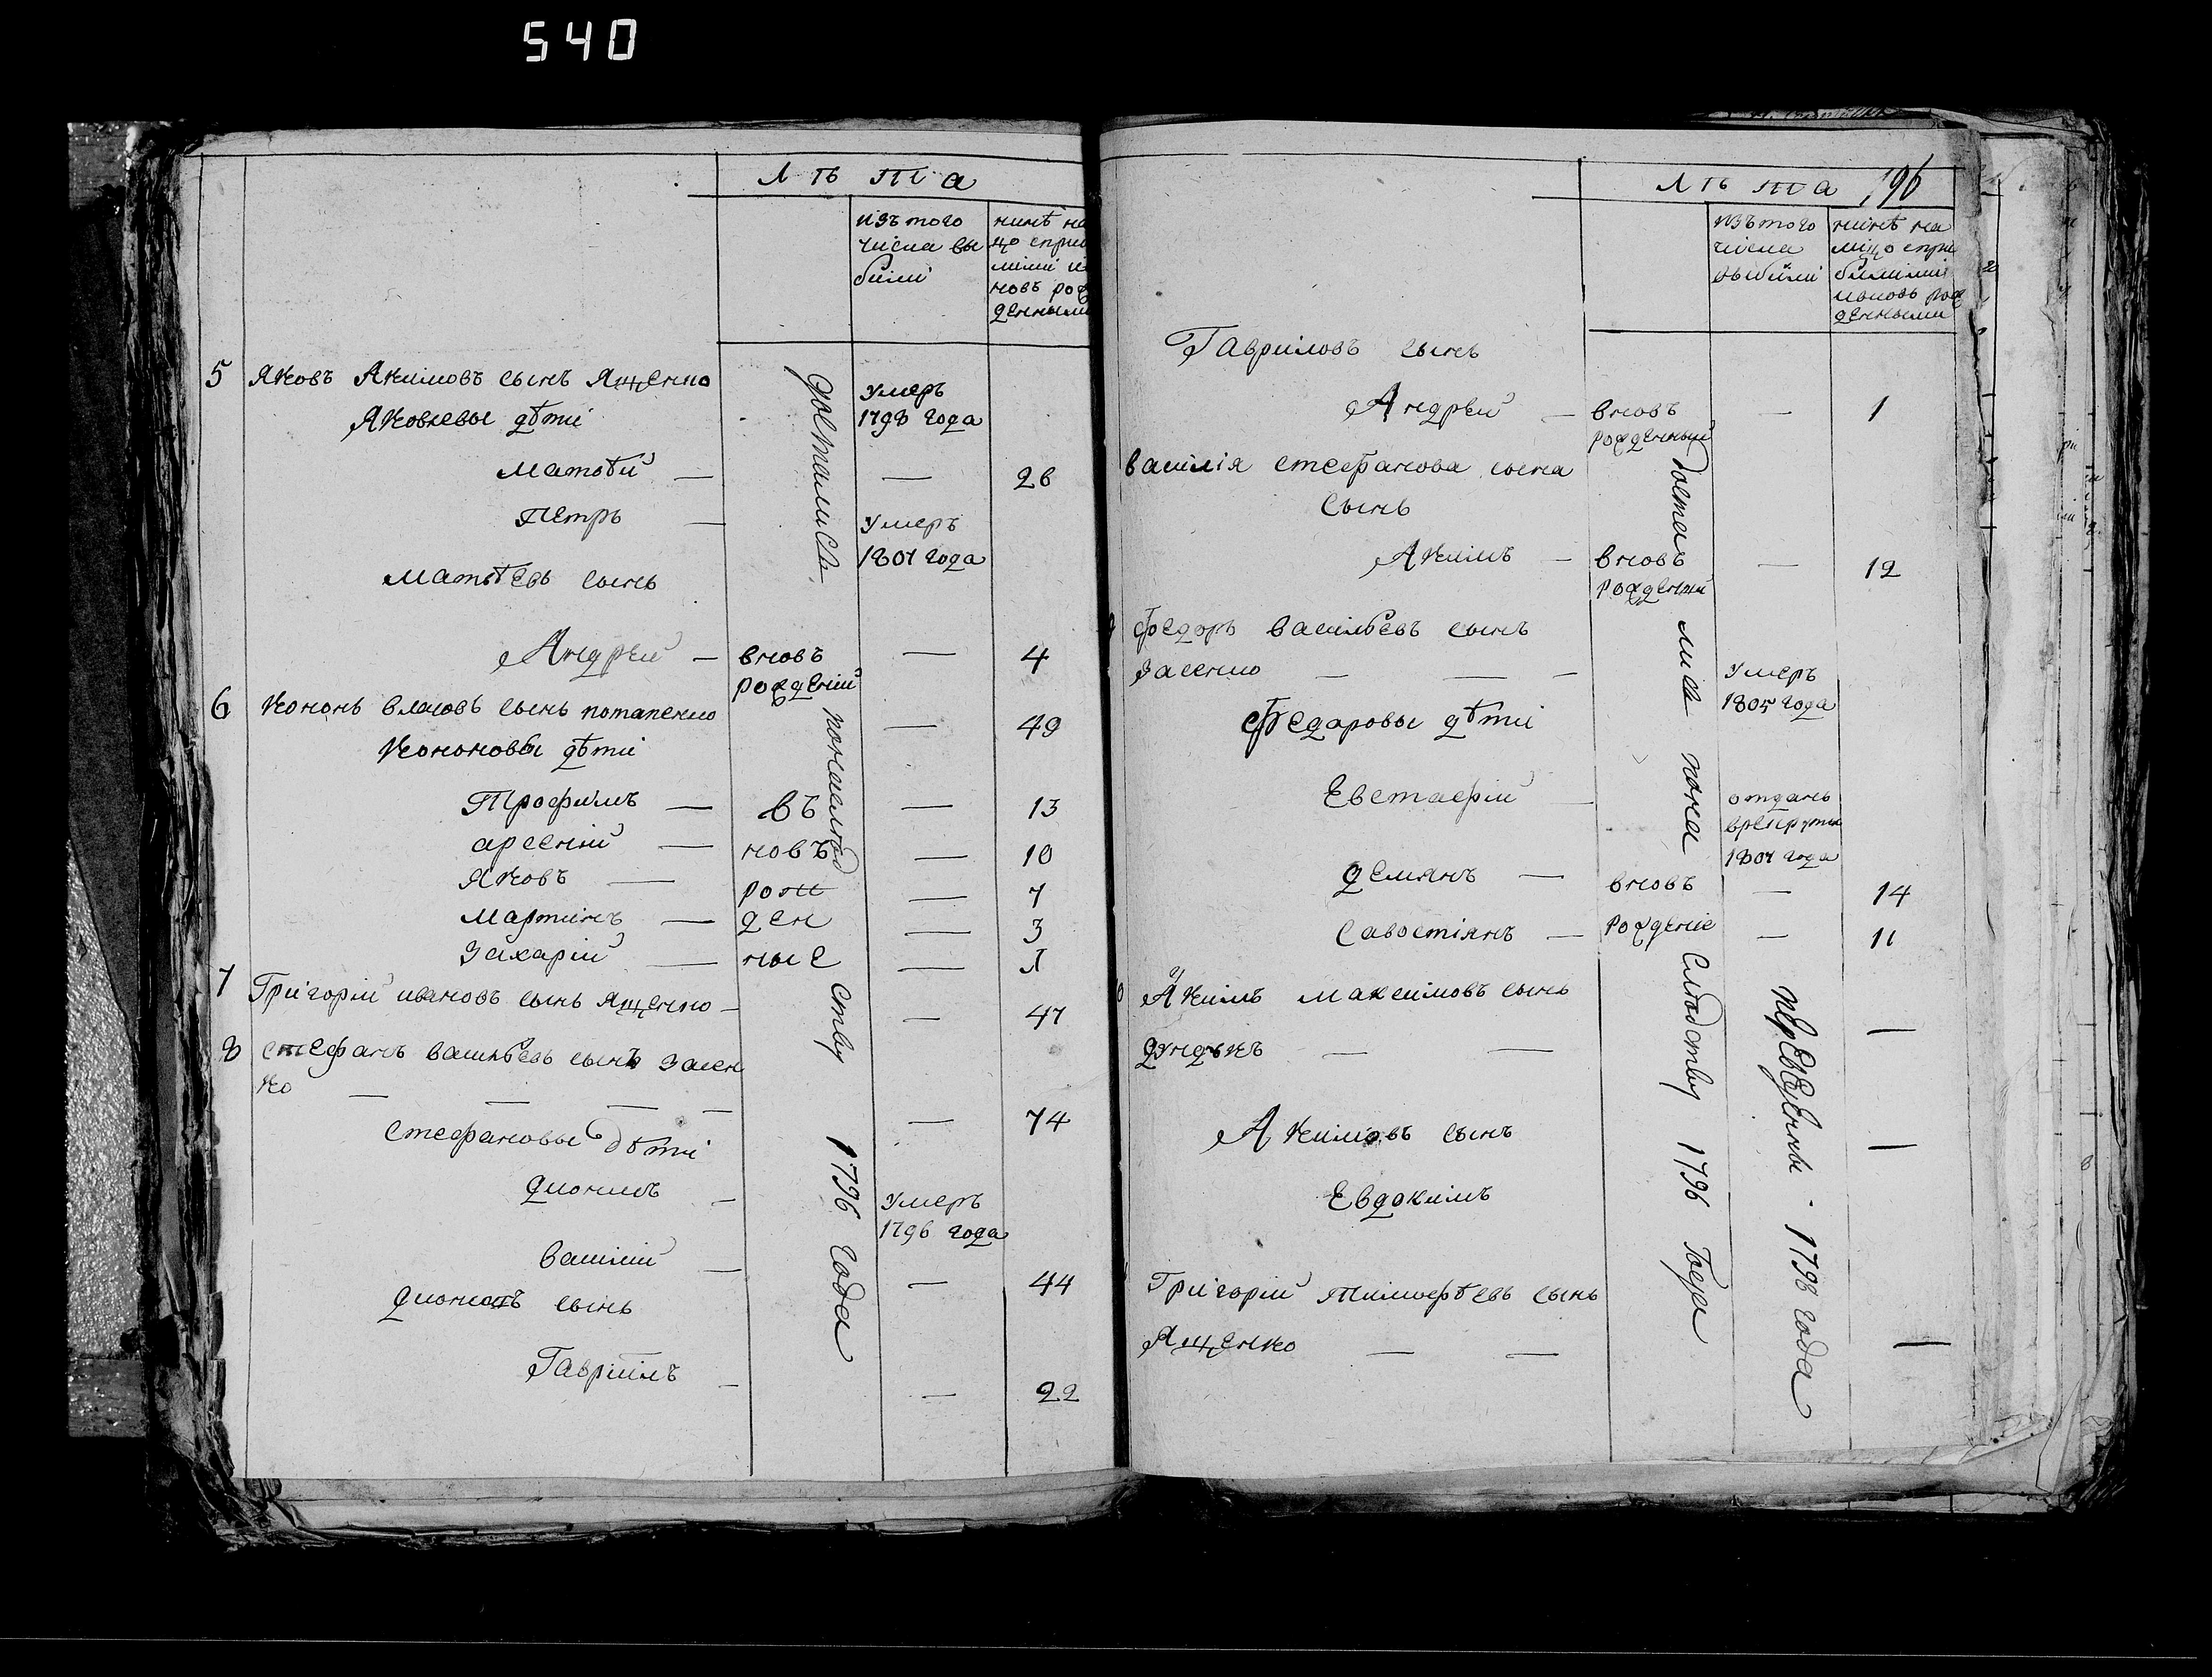 540
Лѣта
изъ того
числа вы
были
нинѣ на
цо спри
милі и
новъ рож
денными
5 Яковъ Акимовъ сынъ Ященко
умеръ
1798 года
Яковлевы дѣти
Матвѣй — — 26
Петръ —
умеръ
1801 года
Матвѣевъ сынъ
Андрей — вновъ — 4
рожденій
6 Кононъ Власовъ сынъ потапенко — 49
Кононовы дѣти
Трофимъ — въ — 13
арсеній — новъ — 10
Яковъ — рож — 7
Мартинъ — ден — 3
Захарій — ные —
7 Григорій ивановъ сынъ Ященко — — 47
8 стефанъ васильевъ сынъ Засен
ко — — — — — 74
стефановы дѣти
дионисъ —
умеръ
1796 года
василій — — 44
сынъ
Гавріилъ — — 22
1796 года
Лѣта 196
изъ того
числа
выбили
нинѣ на
лицо спри
билими
ивновь рож
денными
Гавриловъ сынъ
Андрей — вновъ — 1
рожденный
василія стефанова сына
сынъ
Акимъ — вновъ — 12
рожденый
федоръ васильевъ сынъ
Засенко — — —
умеръ
1805 года
Федаровы дѣти
Евстафій —
отданъ
врекруты
1804 года
демянъ — вновъ — 14
Савостіянъ — рожденіе — 11
Акимъ максимовъ сынъ
— — —
Акимовъ сынъ —
Евдокимъ
Григорій Тимофѣевъ сынъ
Ященко — — —
1796 Года
переведены 1798 года